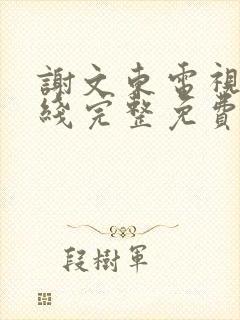 謝文東電視
綫完整免費
段樹軍